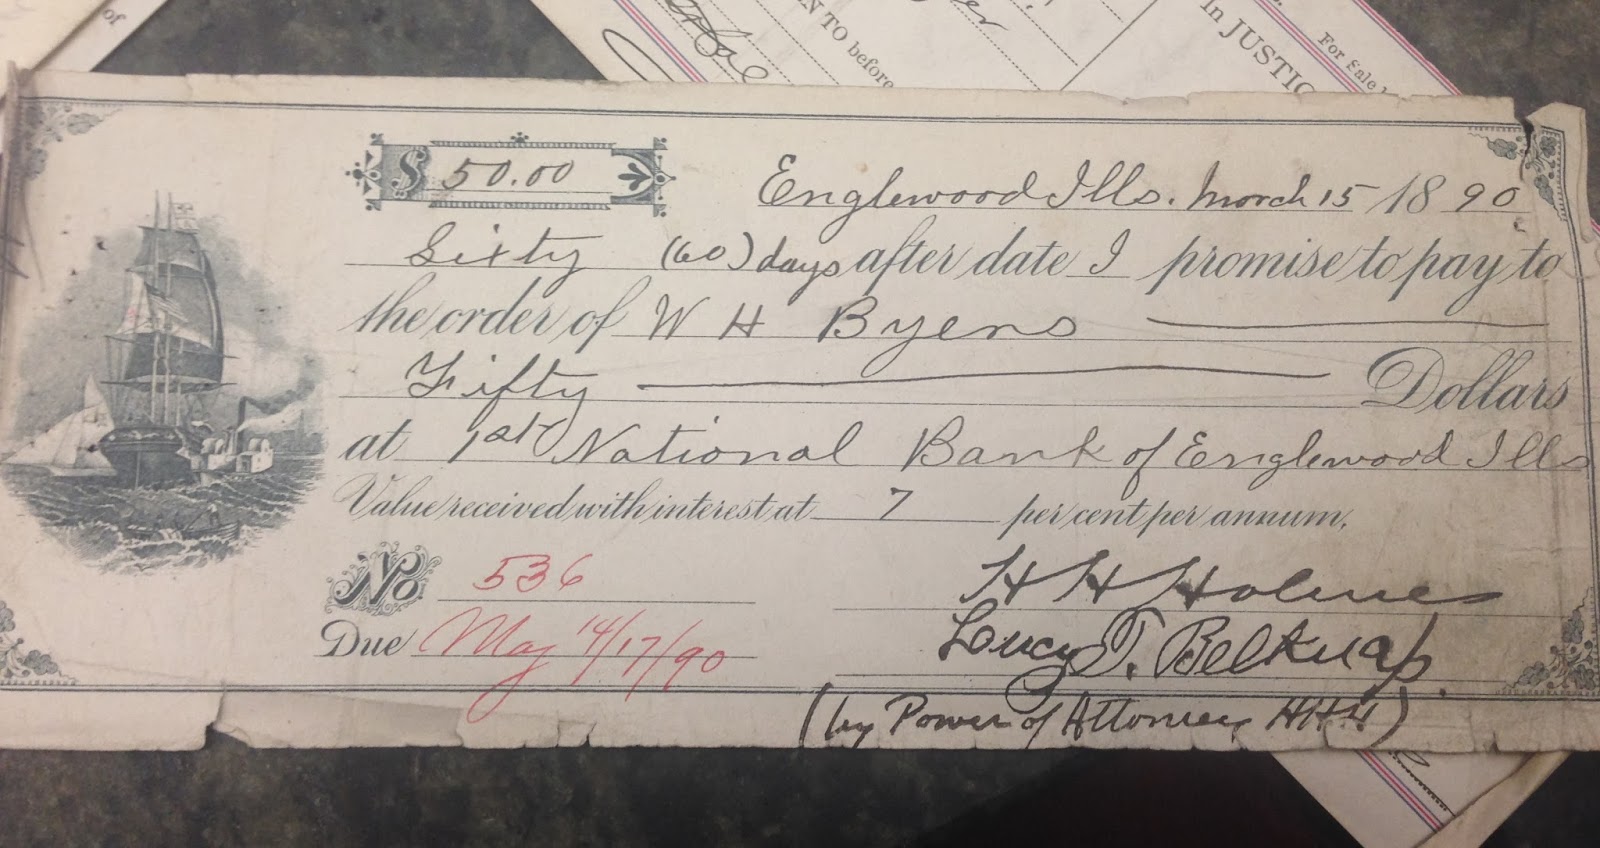 of
N TO before
In JUSTIC
For Sale
$ 50.00
Englewood Ills. March 15 1890
Sixty (60) days after date I promise to pay to
the order of W H Byens
Fifty Dollars
at 1st National Bank of Englewood Ills
Value received with interest at 7 per cent per annum,
No 536
H H Holmes
Due May 14/17/90
Lucy T. Belknap.
(by Power of Attorney HHH)